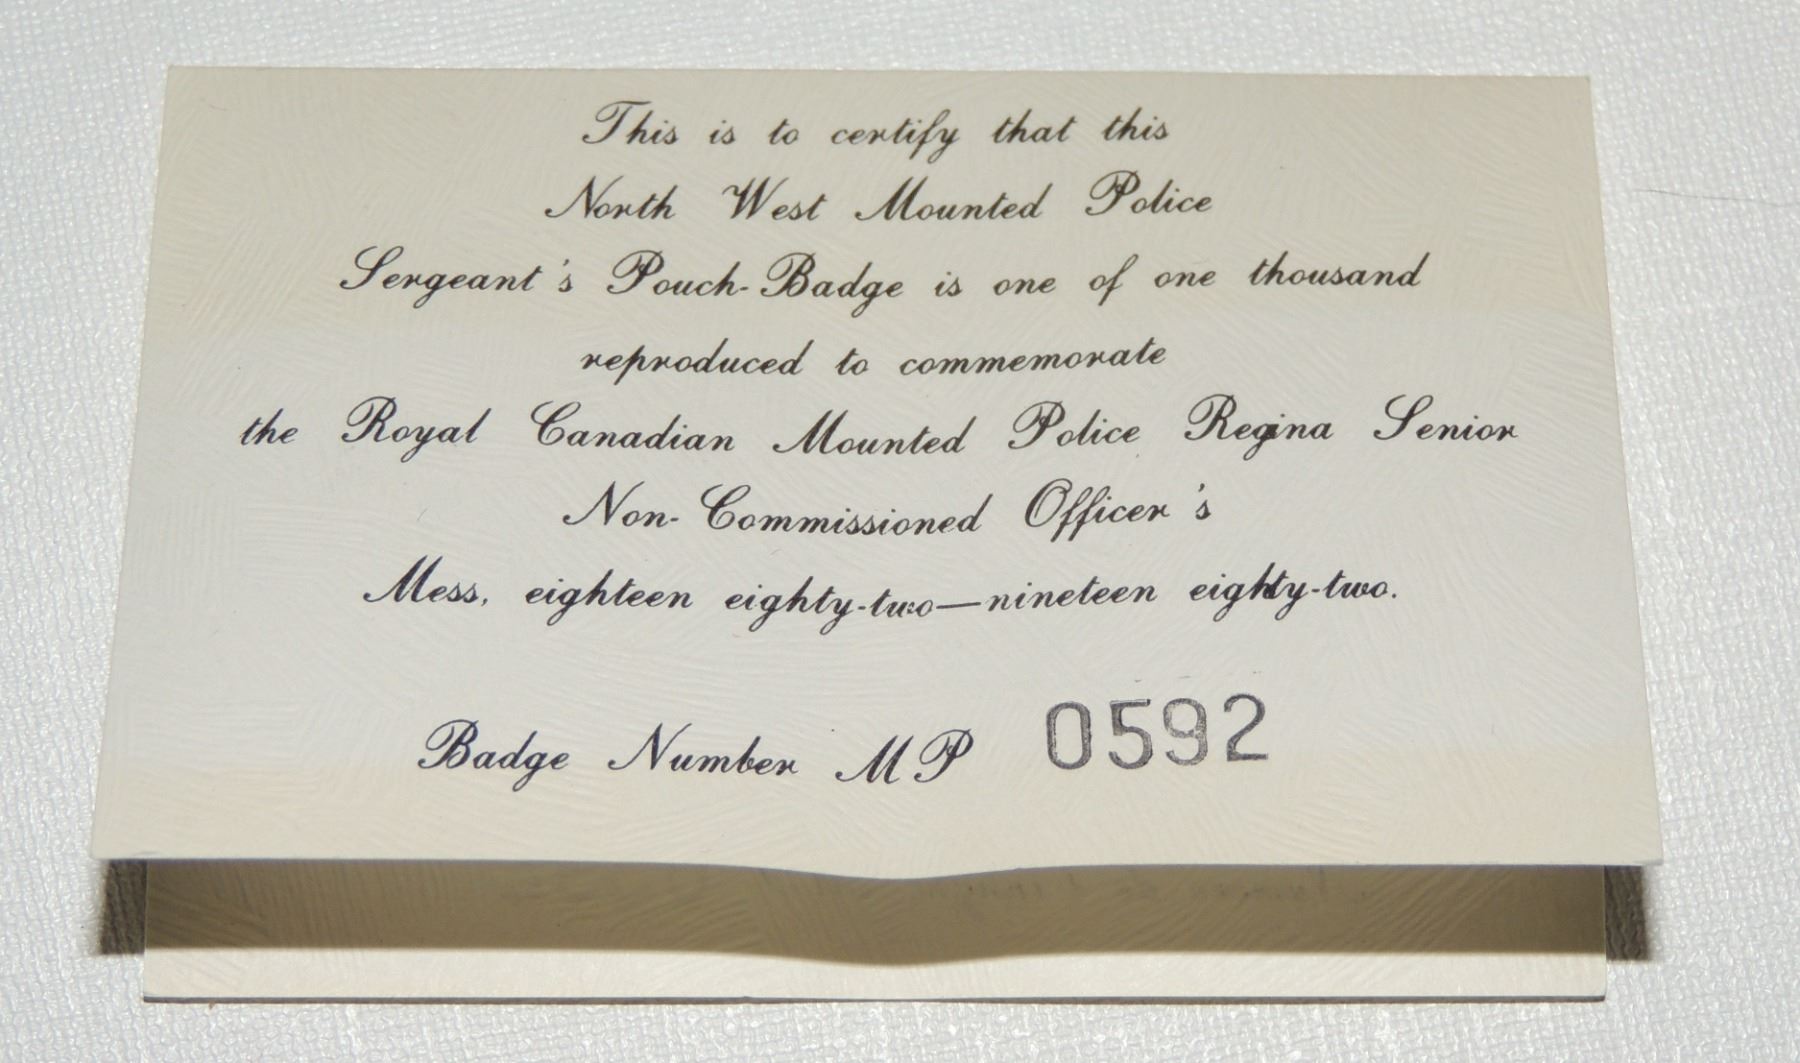 This is to certify that this
North West Mounted Police
Sergeant's Pouch-Badge is one of one thousand
reproduced to commemorate
the Royal Canadian Mounted Police Regina Senior
Non-Commissioned Officer's
Mess, eighteen eighty-two—nineteen eighty-two.
Badge Number MP 0592